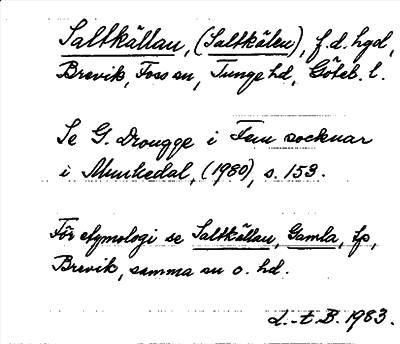 Saltkällan, (Saltkälen), f.d. hgd,
Brevik, Foss sn, Tunge hd, Göteb. l.
Se G. Drougge i Fem socknar
i Munkedal, (1980), s. 153.
För etymologi se Saltkällan, Gamla, tp,
Brevik, samma sn o. hd.
d.-t B. 1983.